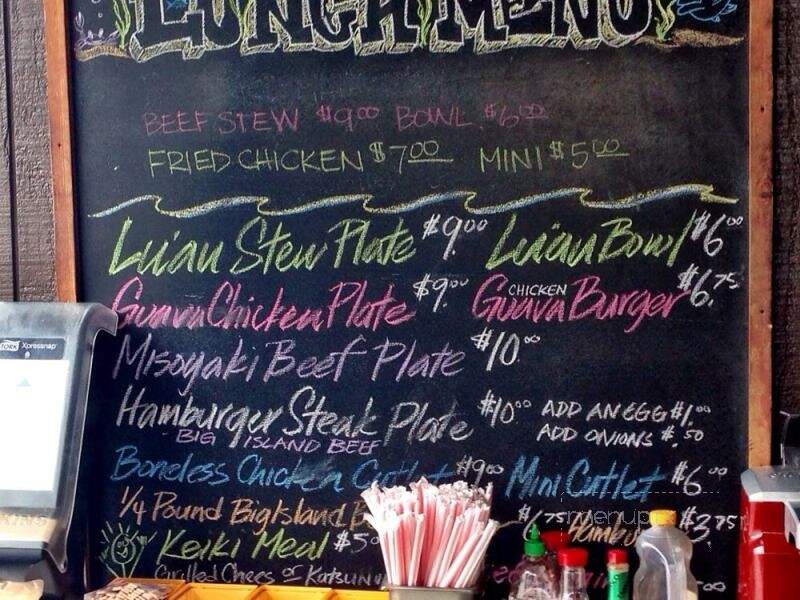 LUNCH MENU
BEEF STEW $9.00 BOWL $6.00
FRIED CHICKEN $7.00 MINI $5.00
Lu'au Stew Plate $9.00 Lu'au Bowl $6.00
Guava Chicken Plate $9.00 Guava CHICKEN Burger $6.75
Misoyaki Beef Plate $10.00
Hamburger Steak Plate $10.00 ADD AN EGG $1.00
- BIG ISLAND BEEF ADD ONIONS $.50
Boneless Chicken Cutlet $9.00 Mini Cutlet $6.00
1/4 Pound Big Island $6.75 $3.75
Keiki Meal $5
Grilled Chees or Katsu
TORK Xpressnap
menupix